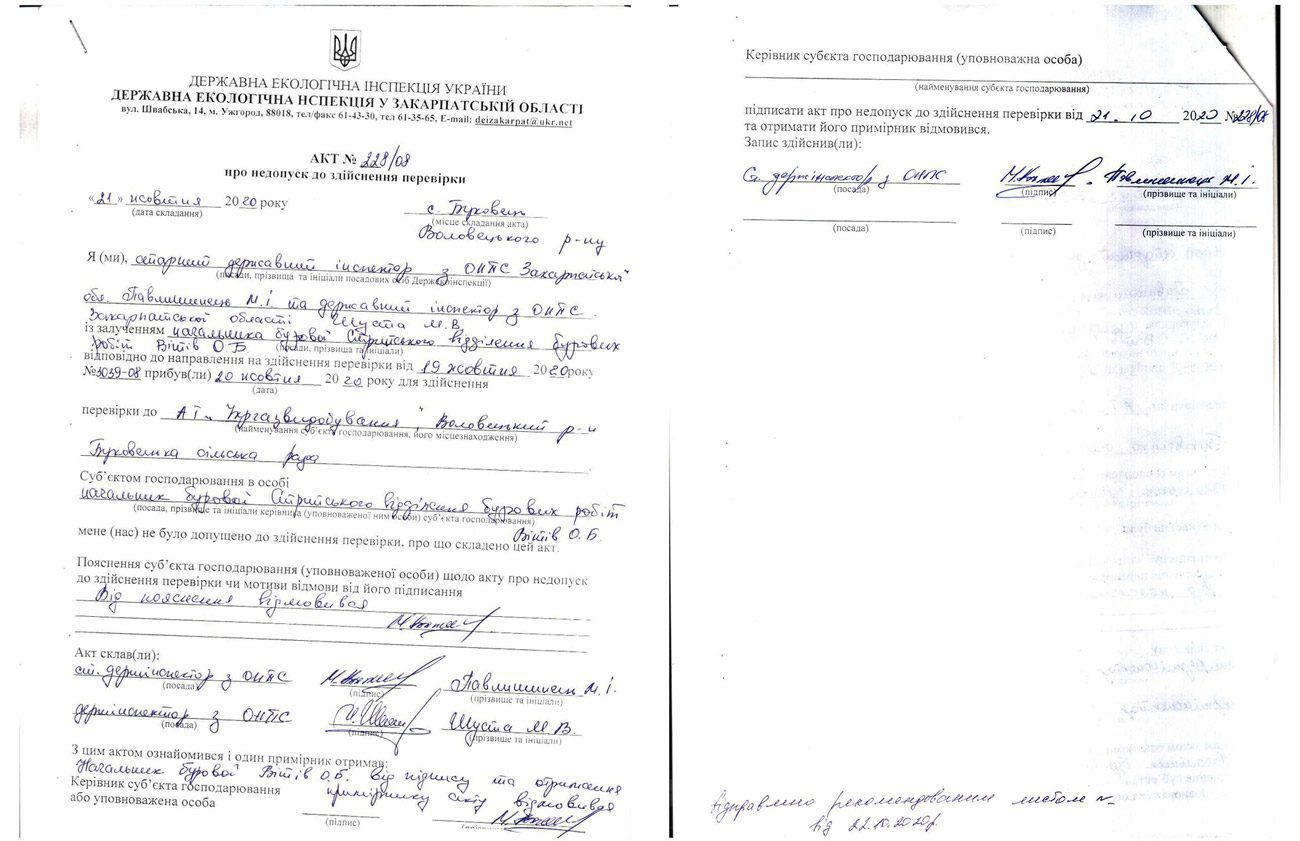 ДЕРЖАВНА ЕКОЛОГІЧНА ІНСПЕКЦІЯ УКРАЇНИ
ДЕРЖАВНА ЕКОЛОГІЧНА НСПЕКЦІЯ У ЗАКАРПАТСЬКІЙ ОБЛАСТІ
вул. Швабська, 14, м. Ужгород, 88018, тел/факс 61-43-30, тел 61-35-65, E-mail: deizakarpat@ukr.net
АКТ № 228/08
про недопуск до здійснення перевірки
«21» жовтня 2020 року
с. Буковець
(дата складання)
(місце складання акта)
Воловецького р-ну
Я (ми), старший державний інспектор з ОНПС Закарпатської
(посади, прізвища та ініціали посадових осіб Держекоінспекції)
обл. Павлишинець М.І. та державний інспектор з ОНПС
Закарпатської області Шуста М.В.
із залученням начальника бурової Стрийського відділення бурових
робіт Вітів О.Б.
(посади, прізвища та ініціали)
відповідно до направлення на здійснення перевірки від 19 жовтня 2020 року
№3039-08 прибув(ли) 20 жовтня 2020 року для здійснення
(дата)
перевірки до АТ "Укргазвидобування", Воловецький р-н
(найменування суб'єкта господарювання, його місцезнаходження)
Буковецька сільська рада
Суб'єктом господарювання в особі
начальник бурової Стрийського відділення бурових робіт
(посада, прізвище та ініціали керівника (уповноваженої ним особи) суб'єкта господарювання)
Вітів О.Б.
мене (нас) не було допущено до здійснення перевірки, про що складено цей акт.
Пояснення суб'єкта господарювання (уповноваженої особи) щодо акту про недопуск
до здійснення перевірки чи мотиви відмови від його підписання
Від пояснення відмовився
Акт склав(ли):
ст. держінспектор з ОНПС Павлишинець М.І.
(посада) (підпис) (прізвище та ініціали)
держінспектор з ОНПС Шуста М.В.
(посада) (підпис) (прізвище та ініціали)
З цим актом ознайомився і один примірник отримав:
Начальник бурової Вітів О.Б. від підпису та отримання
Керівник суб'єкта господарювання
примірнику акту відмовився
або уповноважена особа
(підпис) (прізвище та ініціали)
Керівник субєкта господарювання (уповноважна особа)
(найменування субєкта господарювання)
підписати акт про недопуск до здійснення перевірки від 21.10 2020 №228/08
та отримати його примірник відмовився.
Запис здійснив(ли):
Ст. держінспектор з ОНПС Павлишинець М.І.
(посада) (підпис) (прізвище та ініціали)
(посада) (підпис) (прізвище та ініціали)
відправлено рекомендованим листом №
від 22.10.2020р.